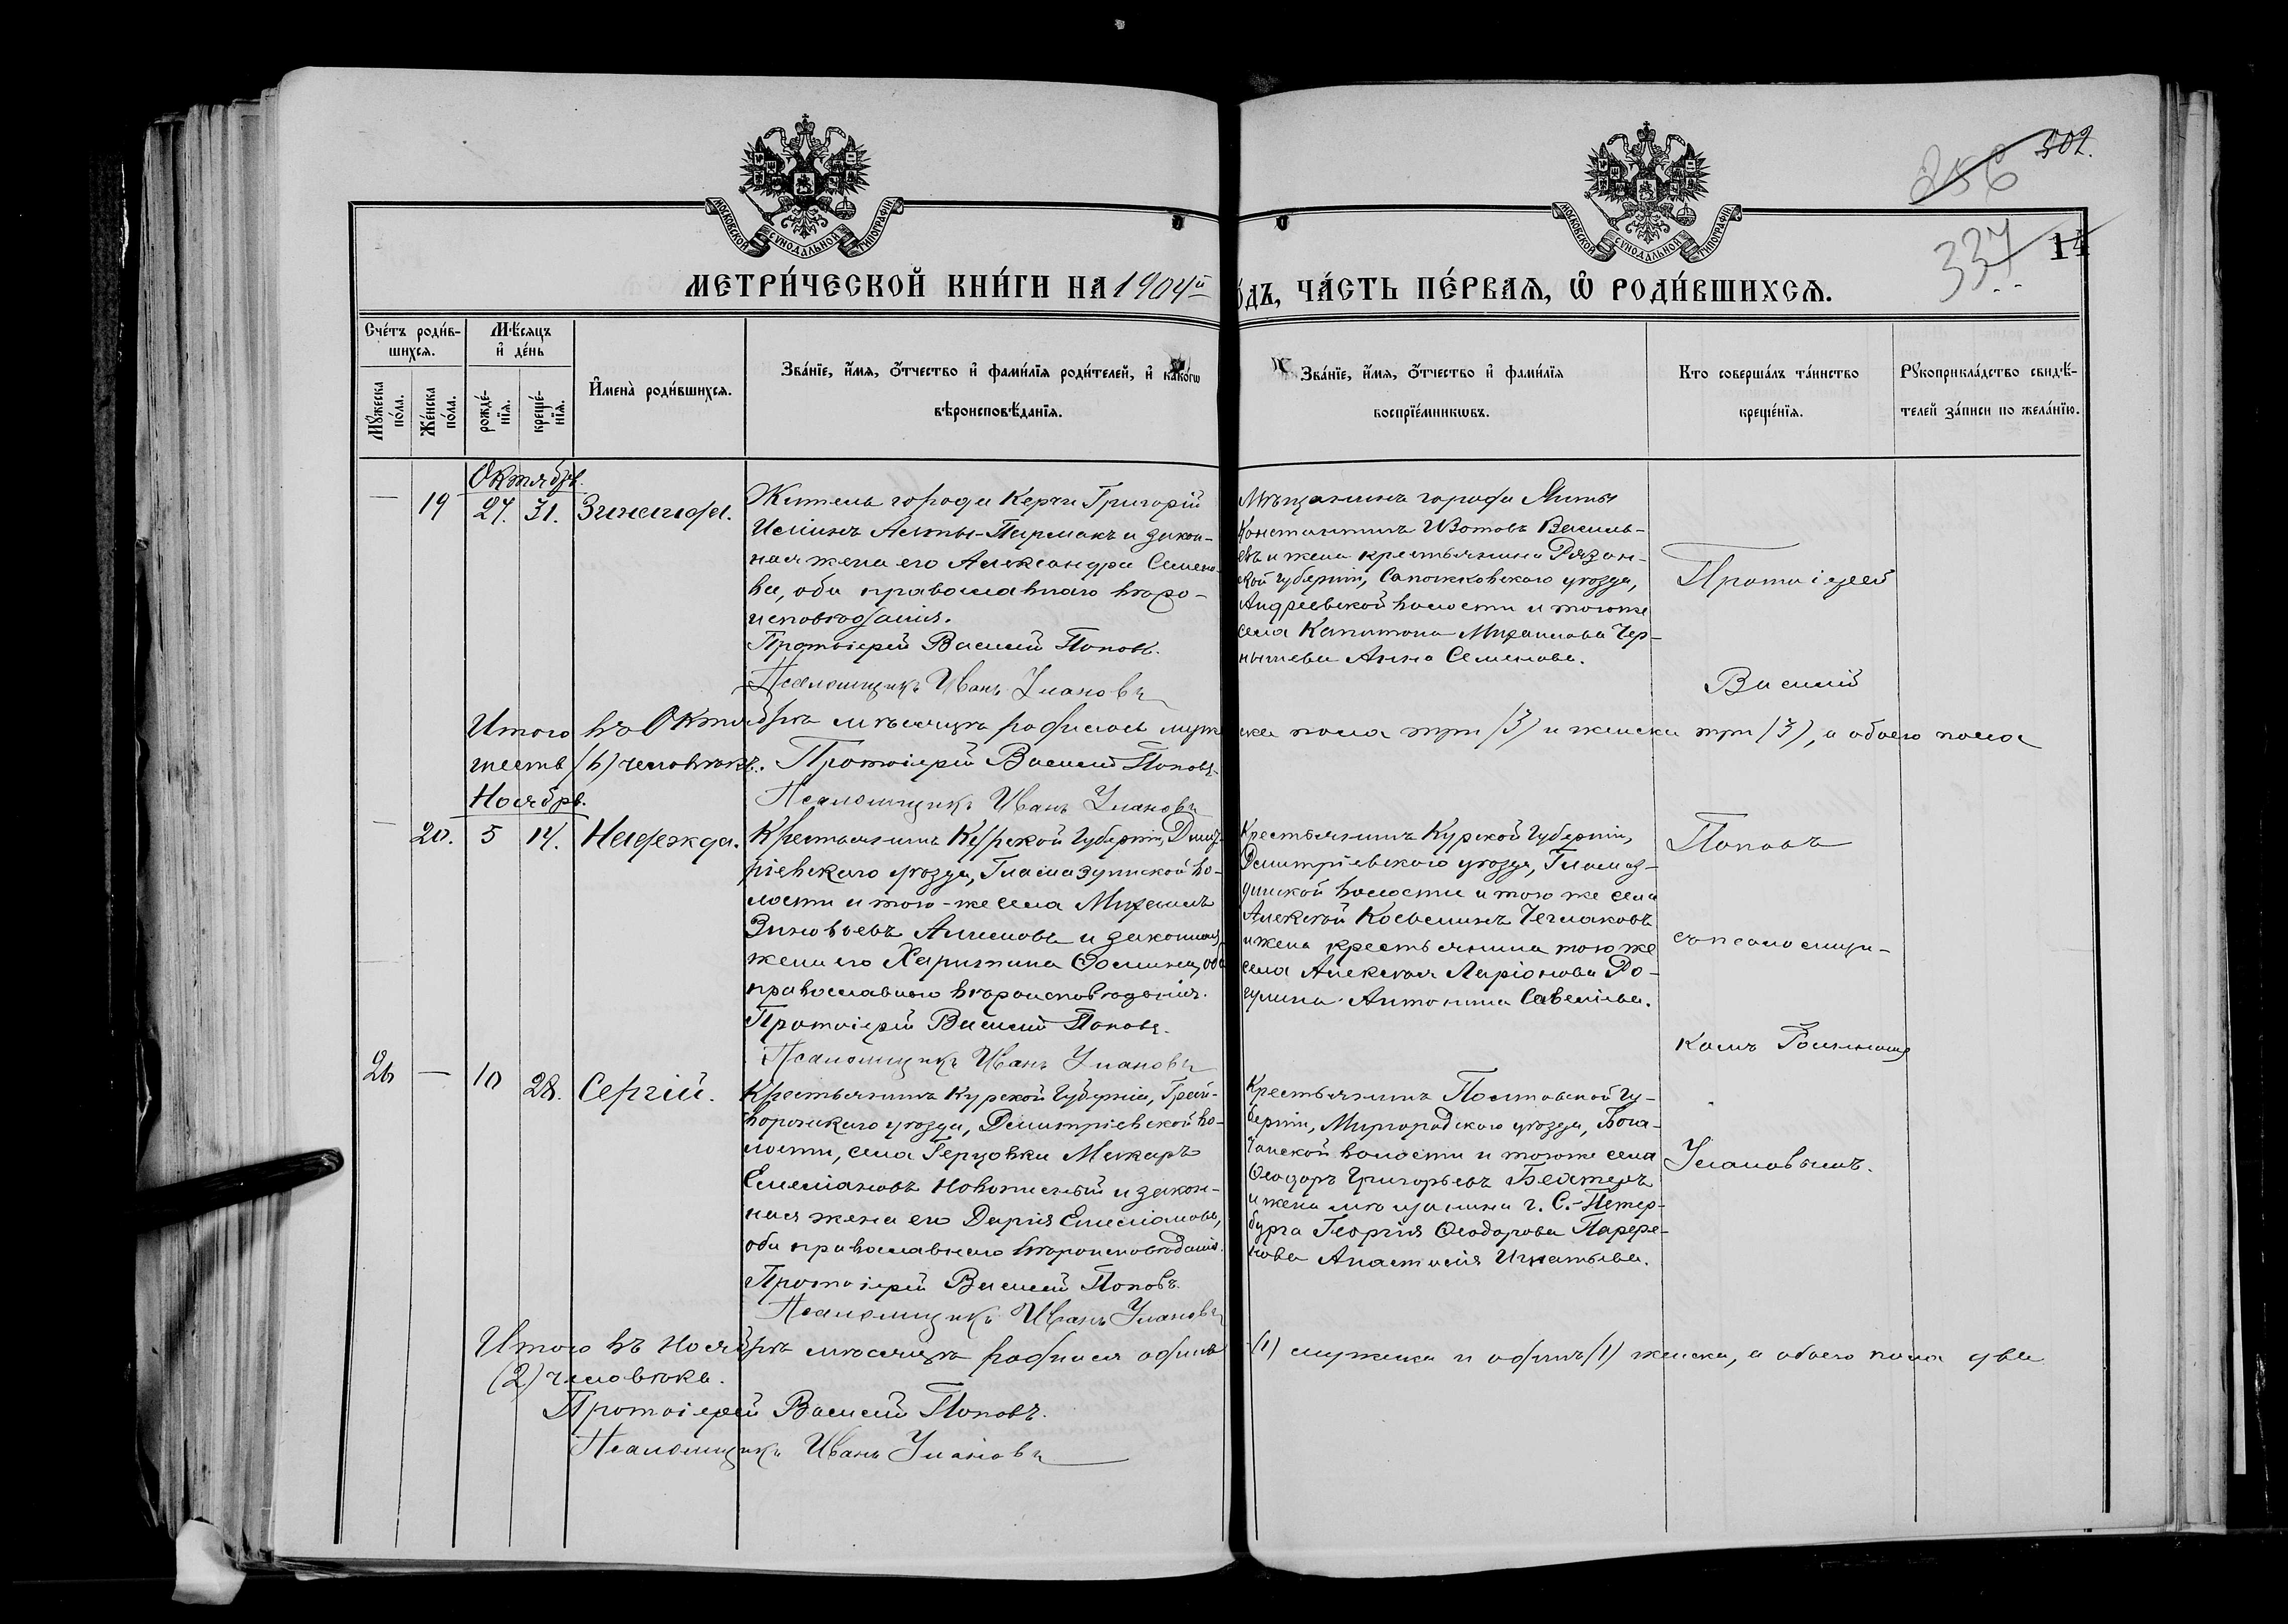 МОСКОВСКОЙ СУНОДАЛЬНОЙ ТИПОГРАФІИ
МОСКОВСКОЙ СУНОДАЛЬНОЙ ТИПОГРАФІИ
256
502.
337
14
МЕТРИ́ЧЕСКОЙ КНИ́ГИ НА 1904й
ѻ́дъ, ЧА́СТЬ ПЕ́РВАѦ, Ѿ РОДИ́ВШИХСѦ.
Сче́тъ роди́в-
шихсѧ.
Мꙋ́жеска по́ла.
Же́нска по́ла.
Мѣ́сѧцъ
и҆ де́нь
рожде́-
нїѧ.
креще́-
нїѧ.
И҆мена̀ роди́вшихсѧ.
Зва́нїе, и҆́мѧ, ѻ҆́тчество и҆ фами́лїѧ роди́телей, и҆ како́гѡ
вѣроисповѣ́данїѧ.
Зва́нїе, и҆́мѧ, ѻ҆́тчество и҆ фами́лїѧ
воспрїе́мникѡвъ.
Кто соверша́лъ та́инство
креще́нїѧ.
Рꙋкоприкла́дство свидѣ́-
телей за́писи по жела́нїю.
Октябрь.
— 19 27. 31. Зинаида.
Житель города Керчи Григорій
Ильинъ Алты-Пармакъ и закон-
ная жена его Александра Семено-
ва, оба православнаго вѣро-
исповѣданія.
Протоіерей Василій Поповъ.
Псаломщикъ Иванъ Улановъ
Мѣщанинъ города Ялты
Константинъ Изотовъ Василь-
евъ и жена крестьянина Рязан-
ской губерніи, Сапожковскаго уѣзда,
Андреевской волости и тогоже
села Капитона Михаилова Чер-
нышева Анна Семенова.
Протоіерей
Василій
Итого въ Октябрѣ мѣсяцѣ родилось муже
ска пола три (3) и женска три (3), а обоего пола
шесть (6) человѣкъ. Протоіерей Василій Поповъ.
Псаломщикъ Иванъ Улановъ
Ноябрь.
— 20. 5 14. Надежда.
Крестьянинъ Курской Губерніи, Дмит-
ріевскаго уѣзда, Гламаздинской во-
лости и того-же села Михаилъ
Зиновьевъ и законная
жена его Харитина Ѳомина, оба
православнаго вѣроисповѣданія.
Протоіерей Василій Поповъ.
Псаломщикъ Иванъ Улановъ
Крестьянинъ Курской Губерніи,
Дмитріевскаго уѣзда, Гламаз-
динской волости и того же села
Алексѣй Косьминъ
и жена крестьянина тогоже
села Алексѣя Ларіонова Ро-
гулина Антонина Савеліева.
Поповъ
съ псаломщи-
комъ Іоанномъ
26 — 10 28. Сергій.
Крестьянинъ Курской Губерніи, Грай-
воронскаго уѣзда, Дмитріевской во-
лости, села Герцовки Макаръ
Емеліановъ и закон-
ная жена его Дарія Емеліанова,
оба православнаго вѣроисповѣданія.
Протоіерей Василій Поповъ.
Псаломщикъ Иванъ Улановъ
Крестьянинъ Полтавской Гу-
берніи, Миргородскаго уѣзда, Бога-
чанской волости и тогоже села
Ѳеодоръ Григорьевъ
и жена мѣщанина г. С.-Петер-
бурга Георгія Ѳеодорова Парфе-
нова Анастасія Игнатьева.
Улановымъ.
Итого въ Ноябрѣ мѣсяцѣ родился одинъ
(1) мужеска и одинъ (1) женска, а обоего пола два
(2) человѣка.
Протоіерей Василій Поповъ.
Псаломщикъ Иванъ Улановъ